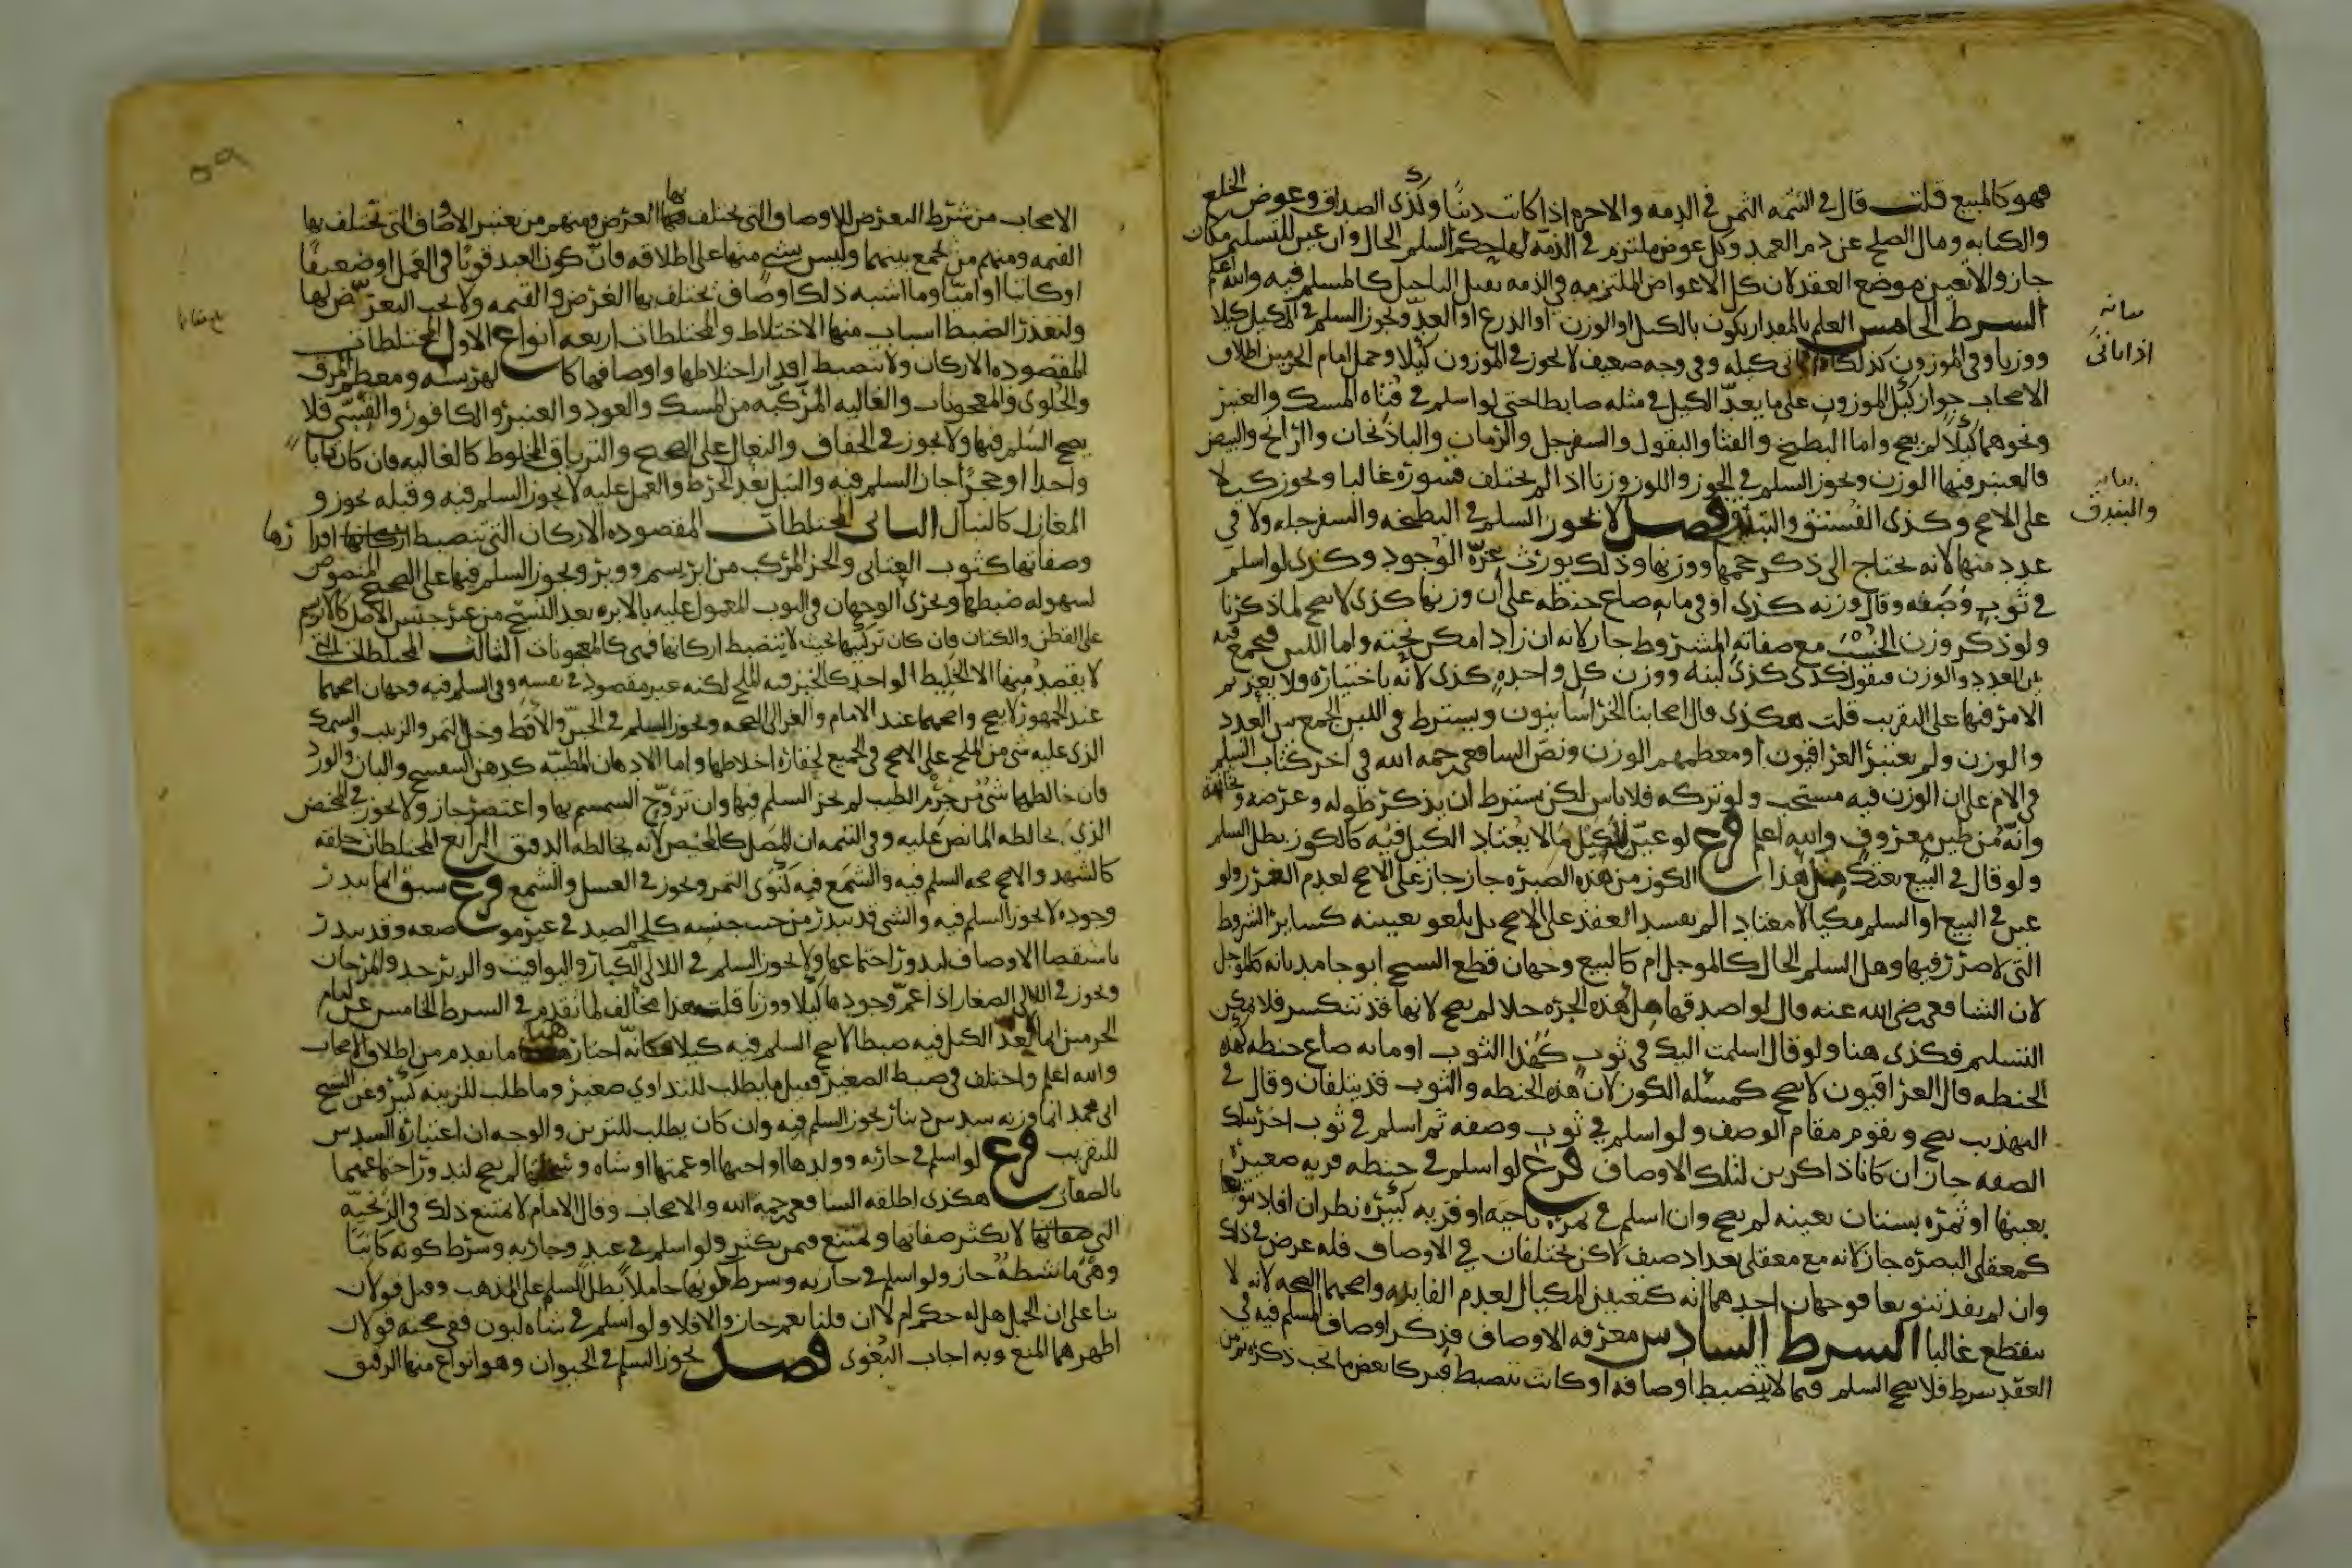 فهو كالمبيع قلت قال في التتمه الثمن في الذمه والاجره اذا كانت دينا وكذى الصداق وعوض الخلع
والكتابه ومال الصلح عن دم العمد وكل عوض ملتزم في الذمه لها حكم السلم الحال وان عين للتسليم مكان
جاز والا تعين موضع العقد لان كل الاعواض الملتزمه في الذمه تقبل التاجيل كالمسلم فيه والله اعلم
الشرط الخامس العلم بالمقدار يكون بالكيل او الوزن او الذرع او العد ويجوز السلم في المكيل كيلا
ووزنا وفي الموزون كذلك كيله وفي وجه ضعيف لا يجوز في الموزون كيلا وحمل امام الحرمين اطلاق
الاصحاب جواز كيل الموزون على ما يعد الكيل في مثله ضابطا حتى لو اسلم في فتاه المسك والعنبر
ونحوهما كيلا لم يصح واما البطيخ والقثا والبقول والسفرجل والرمان والباذنجان والرانج والبيض
فالمعتبر فيها الوزن ويجوز السلم في الجوز واللوز وزنا اذا لم يختلف قشوره غالبا ويجوز كيلا
على الاصح وكذى الفستق والبندق فصل لا يجوز السلم في البطيخه والسفرجله ولا في
عدد منها لانه يحتاج الى ذكر حجمها ووزنها وذلك يورث عزة الوجود وكذى لو اسلم
في ثوب وصفه وقال وزنه كذى او في مايه صاع حنطه على أن وزنها كذى لا يصح لما ذكرنا
ولو ذكر وزن الخشب مع صفاته المشروط جاز لانه ان زاد امكن نحته واما اللبن فيجمع فيه
بين العدد والوزن فيقول كذى كذى لبنه ووزن كل واحده كذى لأنه باختياره ولا يعز ثم
الامر فيها على التقريب قلت هكذى قال اصحابنا الخراسانيون ويشترط في اللبن الجمع بين العدد
والوزن ولم يعتبر العراقيون او معظمهم الوزن ونص الشافعي رحمه الله في اخر كتاب السلم
في الام على ان الوزن فيه مستحب ولو تركه فلا باس لكن يشترط ان يذكر طوله وعرضه وثخانته
وانه من طين معروف والله اعلم فرع لو عين للكيل ما لا يعتاد الكيل فيه كالكوز بطل السلم
ولو قال في البيع بعتك مل هذا الكوز من هذه الصبره جاز على الاصح لعدم الغرر ولو
عين في البيع او السلم مكيالا معتادا لم يفسد العقد على الاصح بل يلغو تعيينه كساير الشروط
التي لا ضرر فيها وهل السلم الحال كالموجل ام كالبيع وجهان قطع الشيخ ابو حامد بانه كالموجل
لان الشافعي رضي الله عنه قال لو اصدقها مل هذه الجره خلا لم يصح لانها قد تنكسر فلا يمكن
التسليم فكذى هنا ولو قال اسلمت اليك في ثوب كهذا الثوب او مايه صاع حنطه كهذه
الحنطه قال العراقيون لا يصح كمسله الكوز لان هذه الحنطه والثوب قد يتلفان وقال في
التهذيب يصح ويقوم مقام الوصف ولو اسلم في ثوب وصفه ثم اسلم في ثوب اخر بتلك
الصفه جاز ان كانا ذاكرين لتلك الاوصاف فرع لو اسلم في حنطه قريه صغيره
بعينها او ثمره بستان بعينه لم يصح وان اسلم في ثمره ناحيه او قريه كبيره نظر ان افاد تنويعا
كمعقلي البصره جاز لانه مع معقلي بغداد صنف لاكن يختلفان في الاوصاف فله غرض في ذلك
وان لم يفد تنويعا فوجهان احدهما انه كتعيين المكيال لعدم الفايده واصحهما الصحه لانه لا
ينقطع غالبا الشرط السادس معرفه الاوصاف فذكر اوصاف المسلم فيه في
العقد شرط فلا يصح السلم فيما لا ينضبط اوصافه او كانت تنضبط فتركا بعض ما يجب ذكره ثم من
بيانه
اذا تاتى
بيانه
والبندق
الاصحاب من شرط التعرض للاوصاف التي يختلف بها الغرض ومنهم من يعتبر الاوصاف التي تختلف بها
القيمه ومنهم من يجمع بينهما وليس شي منها على اطلاقه فان كون العبد قويا في العمل او ضعيفا
او كاتبا او اميا وما اشبه ذلك اوصاف يختلف بها الغرض والقيمه ولا يجب التعرض لها
ولتعذر الضبط اسباب منها الاختلاط والمختلطات اربعه انواع الاول المختلطات
المقصوده الاركان ولا ينضبط اقدار اختلاطها واوصافها كالهريسه ومعظم المرق
والحلوى والمعجونات والغاليه المركبه من المسك والعود والعنبر والكافور والقسي فلا
يصح السلم فيها ولا يجوز في الخفاف والنعال على الصحيح والترياق المخلوط كالغاليه فان كان نباتا
واحدا او حجرا جاز السلم فيه والنبل بعد الخرط والعمل عليه لا يجوز السلم فيه وقبله يجوز و
المغازل كالنبال الثاني المختلطات المقصوده الاركان التي تنضبط اقدارها
وصفاتها كثوب العتابي والخز المركب من ابريسم ووبر ويجوز السلم فيها على الصحيح المنصوص
لسهوله ضبطها ويجرى الوجهان في الثوب المعمول عليه بالابره بعد النسج من غير جنس الاصل كالابريسم
على القطن والكتان فان كان تركيبها بحيث لا ينضبط اركانها فهي كالمعجونات الثالث المختلطات التي
لا يقصد منها الا الخليط الواحد كالخبز فيه الملح لكنه غير مقصود في نفسه وفي السلم فيه وجهان اصحهما
عند الجمهور لا يصح واصحهما عند الامام والغزالي الصحه ويجوز السلم في الجبن والأقط وخل التمر والزبيب والسمك
الذى عليه شي من الملح على الاصح في الجميع لحقارة اخلاطها واما الادهان المطيبه كدهن البنفسج والبان والورد
فان خالطها شي من جرم الطيب لم يجز السلم فيها وان تروح السمسم بها واعتصر جاز ولا يجوز في المخيض
الذي يخالطه الما نص عليه وفي التتمه ان المصل كالمخيض لانه يخالطه الدقيق الرابع المختلطات خلقه
كالشهد والاصح صحه السلم فيه والشمع فيه كنوى التمر ويجوز في العسل والشمع فرع سبق ان ما يندر
وجوده لا يجوز السلم فيه والشي قد يندر من حيث جنسه كلحم الصيد في غير موضعه وقد يندر
باستقصا الاوصاف لندور اجتماعها ولا يجوز السلم في اللالي الكبار واليواقيت والزبرجد والمرجان
ويجوز في اللالي الصغار اذا عم وجودها كيلا ووزنا قلت هذا مخالف لما تقدم في الشرط الخامس عن امام
الحرمين ان ما لا يعد الكيل فيه ضبطا لا يصح السلم فيه كيلا فكانه اختار هنا ما تقدم من اطلاق الاصحاب
والله اعلم واختلف في ضبط الصغير فقيل ما يطلب للتداوي صغير وما طلب للزينه كبير وعن الشيخ
ابي محمد ان ما وزنه سدس دينار يجوز السلم فيه وان كان يطلب للتزين والوجه ان اعتباره السدس
للتقريب فرع لو اسلم في جاريه وولدها او اختها او عمتها او شاه وسخلتها لم يصح لندور اجتماعهما
بالصفات هكذى اطلقه الشافعي رحمه الله والاصحاب وقال الامام لا يمتنع ذلك في الزنجيه
التي لا يكثر صفاتها ويمتنع فيمن يكثر ولو اسلم في عبد وجاريه وشرط كونه كاتبا
وهي ماشطه جاز ولو اسلم في جاريه وشرط كونها حاملا بطل السلم على المذهب وقيل قولان
بنا على ان الحمل هل له حكم ام لا ان قلنا نعم جاز والا فلا ولو اسلم في شاه لبون ففي صحته قولان
اظهرهما المنع وبه اجاب البغوى فصل يجوز السلم في الحيوان وهو انواع منها الرقيق